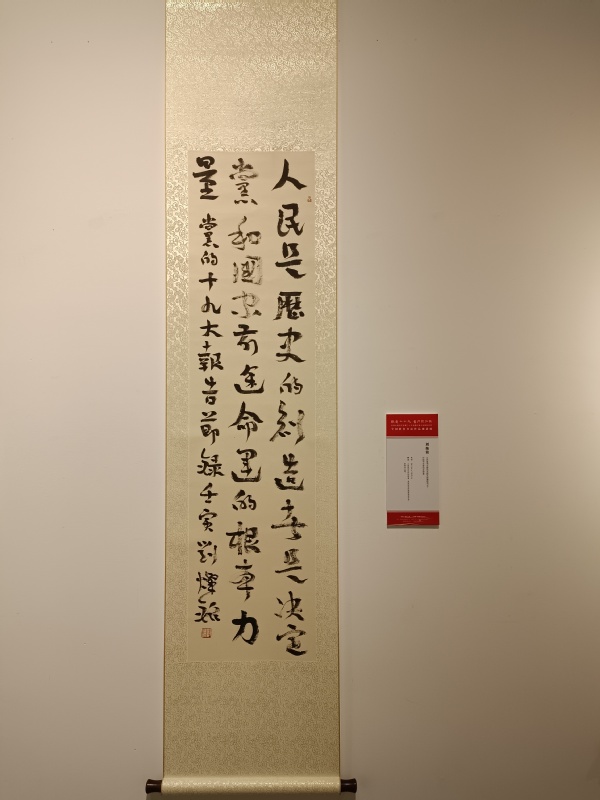 人民是歷史的創造者是決定
黨和國家前途命運的根本力
量 黨的十九大報告節録壬寅劉燦銘